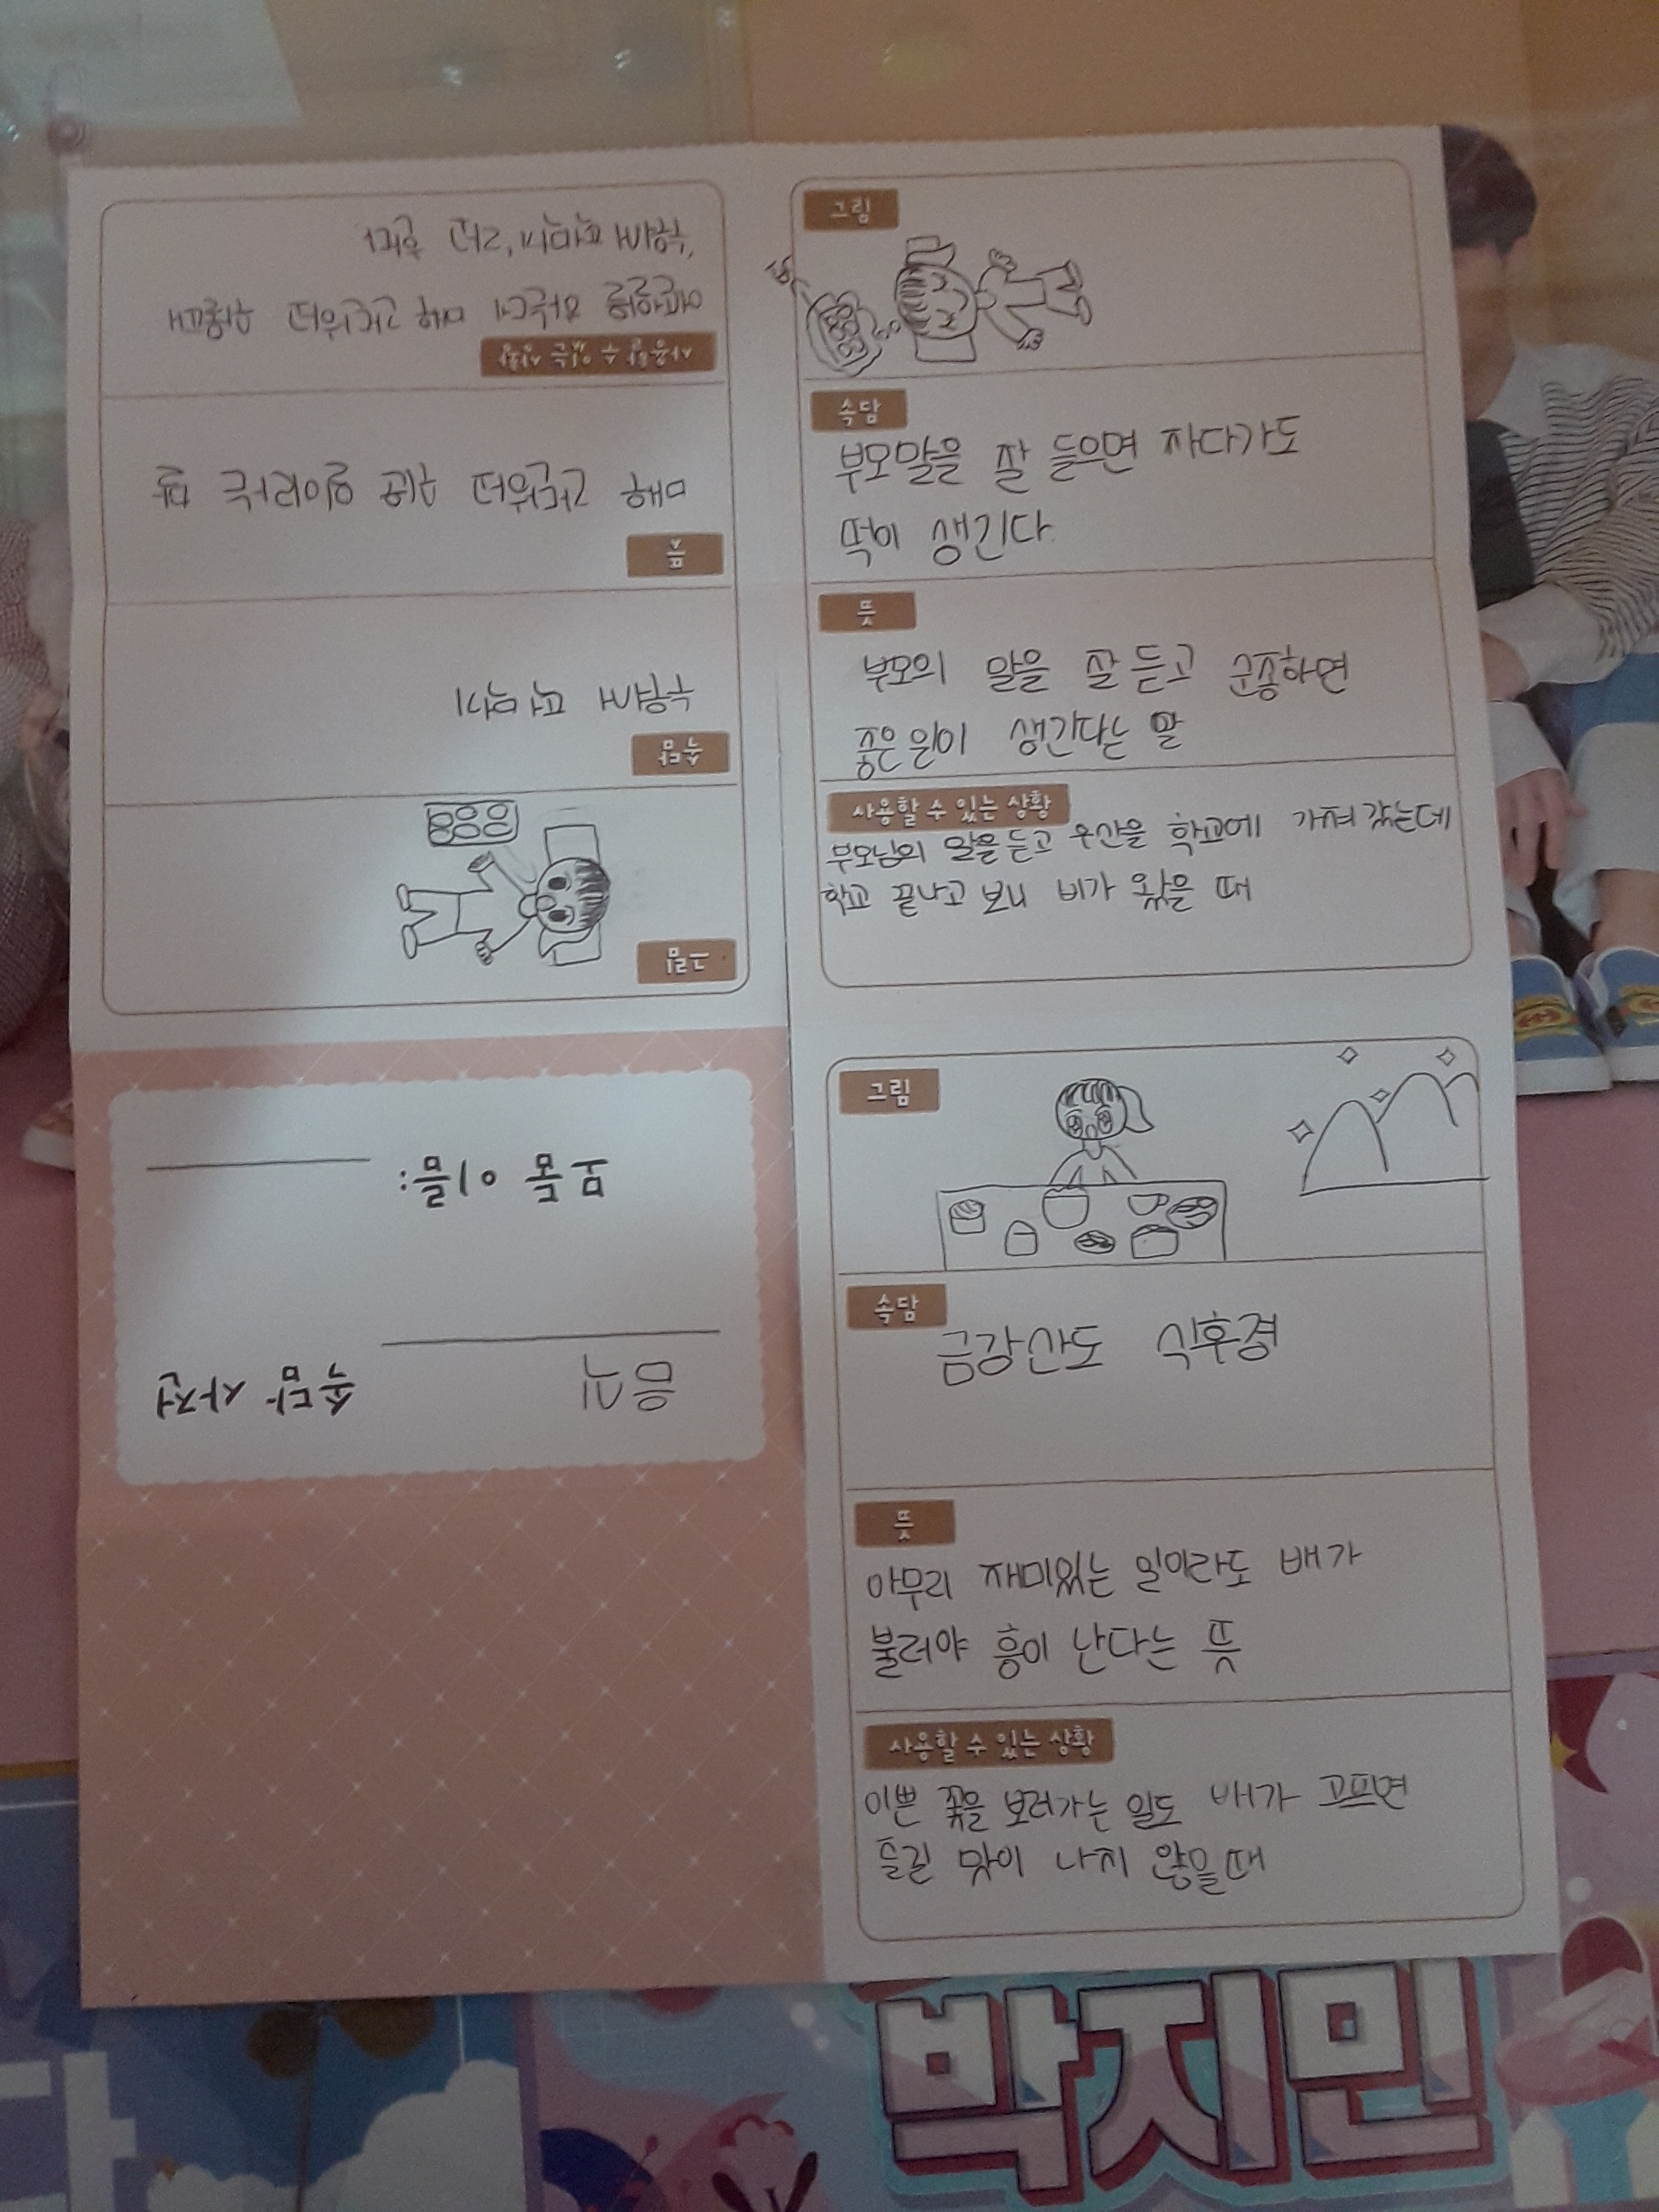 그림
속담
부모말을 잘 들으면 자다가도
떡이 생긴다.
뜻
부모의 말을 잘 듣고 순종하면
좋은 일이 생긴다는 말
사용할 수 있는 상황
부모님의 말을 듣고 우산을 학교에 가져 갔는데
학교 끝나고 보니 비가 왔을 때
그림
속담
금강산도 식후경
뜻
아무리 재미있는 일이라도 배가
불러야 흥이 난다는 뜻
사용할 수 있는 상황
이쁜 꽃을 보러가는 일도 배가 고프면
들린 맛이 나지 않을때
음식 속담 사전
모둠 이름:
그림
속담
누워서 떡 먹기
뜻
사용할 수 있는 상황
박지민